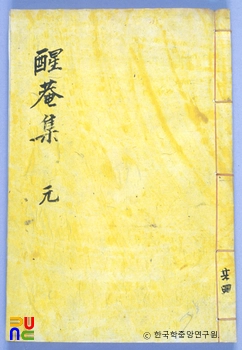 醒菴集 元
共四
ⓒ 한국학중앙연구원